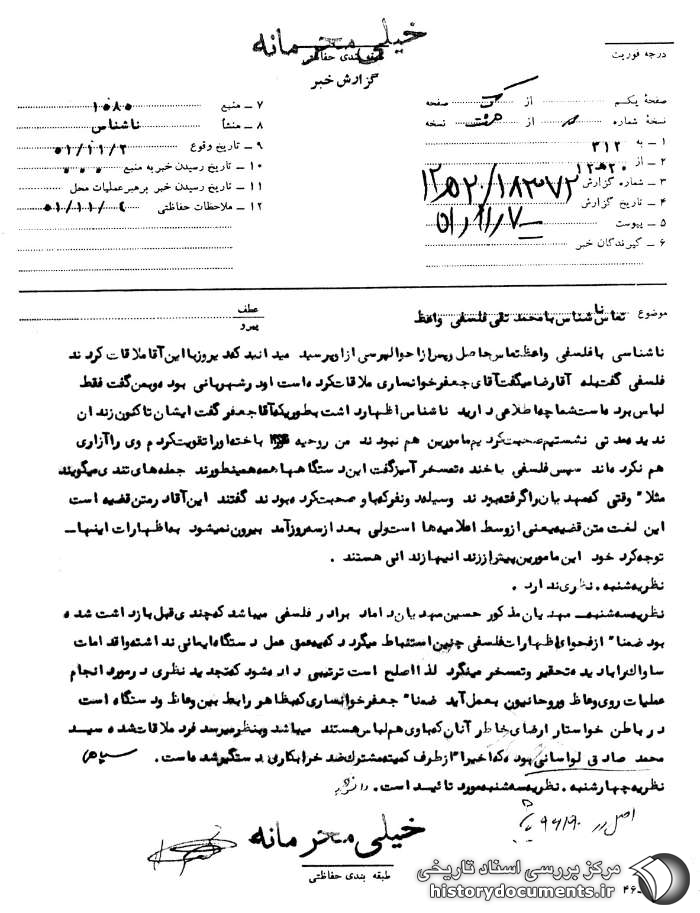 خیلی محرمانه
طبقه بندی حفاظتی
گزارش خبر
درجه فوریت
صفحه یکم از صفحه
نسخه شماره از هفت نسخه
۱ ــ به ۳۱۲
۲ ــ از ۲۰ هـ ۱۲
۳ ــ شماره گزارش
۴ ــ تاریخ گزارش
۵ ــ پیوست
۶ ــ گیرندگان خبر
۷ ــ منبع ۱۰۸۵
۸ ــ منشأ ناشناس
۹ ــ تاریخ وقوع ۵۱/۱۱/۲
۱۰ ــ تاریخ رسیدن خبر به منبع
۱۱ ــ تاریخ رسیدن خبر برهبر عملیات محل
۱۲ ــ ملاحظات حفاظتی ۵۱/۱۱/۴
موضوع تماس ناشناس با محمد تقی فلسفی واعظ
عطف
پیرو
ناشناسی با فلسفی واعظ تماس حاصل و پس از احوالپرسی از او پرسید میدانید که دیروز با این آقا ملاقات کردند
فلسفی گفت بله آقا رضا میگفت آقای جعفر خوانساری ملاقات کرده است او در شهربانی بوده و بمن گفت فقط
لباس برده است شما چه اطلاعی دارید ناشناس اظهار داشت بطوریکه آقا جعفر گفت ایشان تا کنون زندان
ندیده مدتی نشستیم صحبت کردیم مامورین هم نبودند من روحیه باخته او را تقویت کردم وی را آزاری
هم نکرده اند سپس فلسفی با خنده تمسخر آمیز گفت این دستگاهها همه همینطورند جمله های تندی میگویند
مثلا" وقتی که مهدیان را گرفته بودند وسیله دو نفر که با او صحبت کرده بودند گفتند این آقا در متن قضیه است
این لغت متن قضیه یعنی از وسط اعلامیه ها است ولی بعد از سه روز آمد بیرون نمیشود به اظهارات اینهاــ
توجه کرد خود این مامورین بیش از زندانیها زندانی هستند .
نظریه شنبه . نظری ندارد .
نظریه سه شنبه ــ مهدیان مذکور حسین مهدیان داماد برادر فلسفی میباشد که چندی قبل بازداشت شده
بود ضمنا" از فحوای اظهارات فلسفی چنین استنباط میگردد که به عمق عمل دستگاه ایمانی نداشته و اقدامات
ساواک را با دیده تحقیر و تمسخر مینگرد لذا اصلح است ترتیبی داده شود که تجدید نظری در مورد انجام
عملیات روی وعاظ و روحانیون بعمل آید ضمنا" جعفر خوانساری که بظاهر رابط بین وعاظ و دستگاه است
در باطن خواستار ارضای خاطر آنان که با وی هم لباس هستند میباشد و بنظر میرسد فرد ملاقات شده سید
محمد صادق لواسانی بوده که اخیرا" از طرف کمیته مشترک ضد خرابکاری دستگیر شده است .
نظریه چهارشنبه . نظریه سه شنبه مورد تائید است .
اصل در
خیلی محرمانه
طبقه بندی حفاظتی
مرکز بررسی اسناد تاریخی
historydocuments.ir